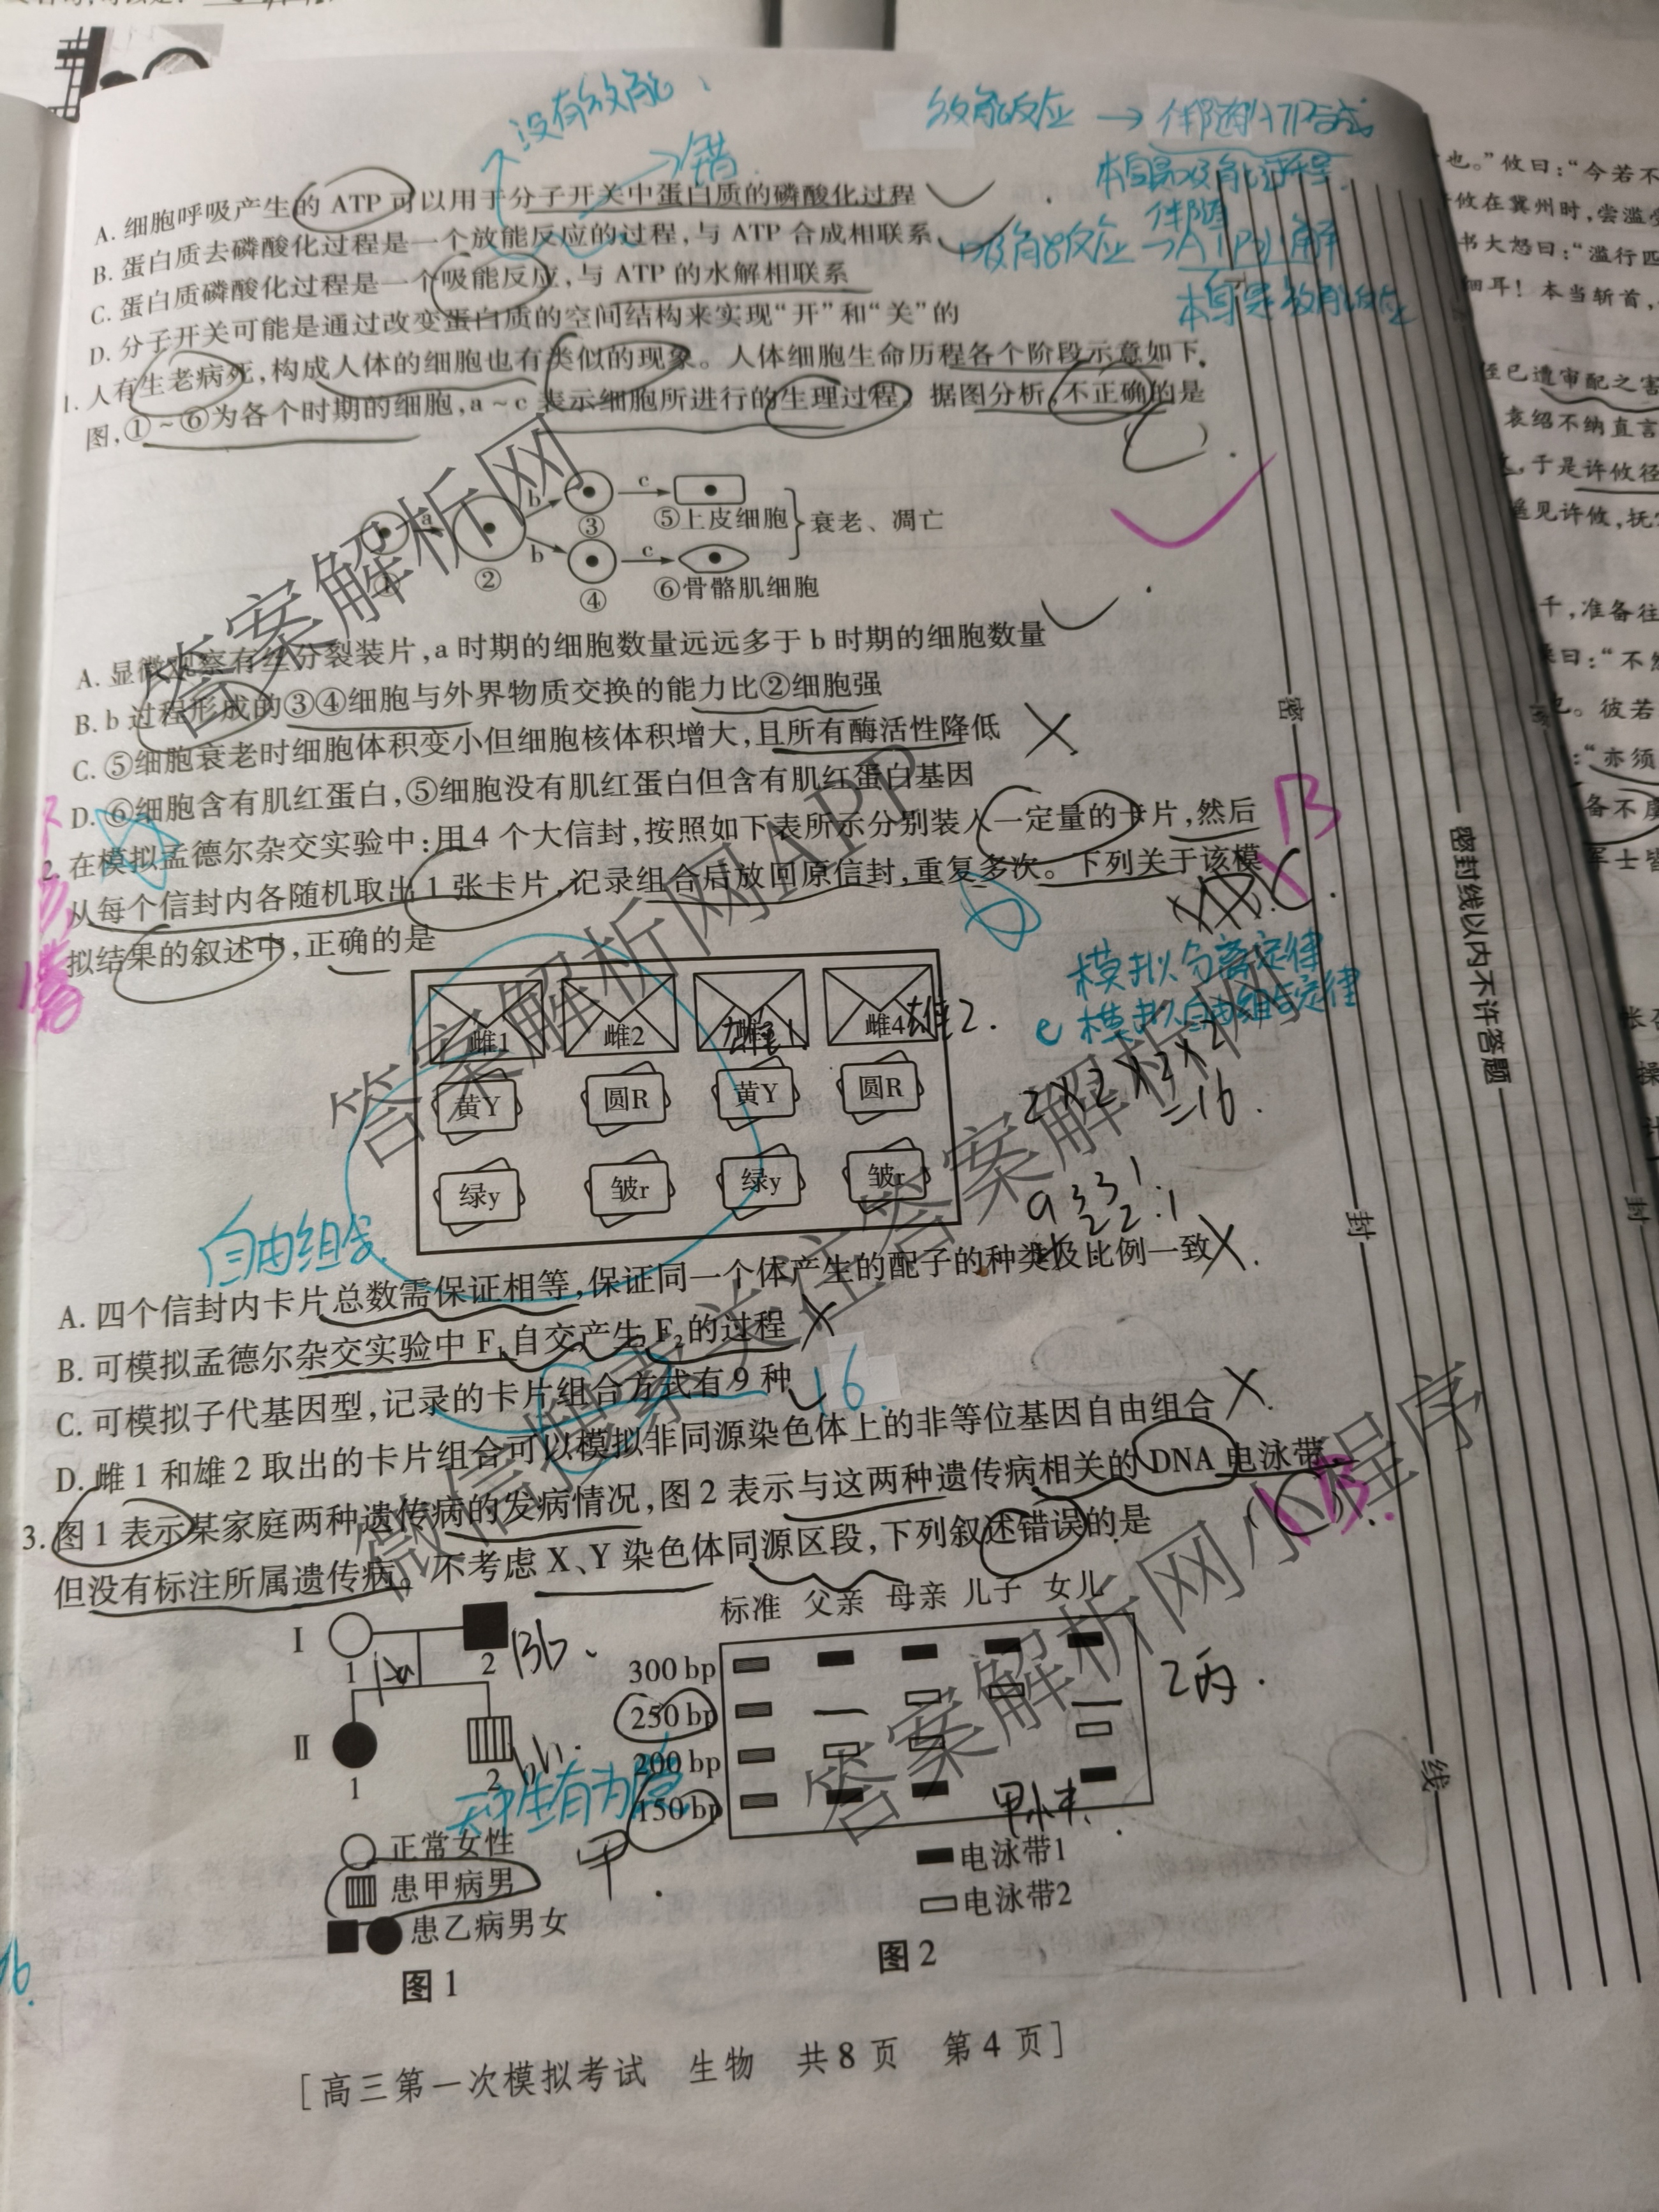 没有放能
放能反应 → 伴随ATP合成
→错
本身是吸能过程
A. 细胞呼吸产生的 ATP 可以用于分子开关中蛋白质的磷酸化过程
伴随
B. 蛋白质去磷酸化过程是一个放能反应的过程,与 ATP 合成相联系
吸能反应 → ATP水解
C. 蛋白质磷酸化过程是一个吸能反应,与 ATP 的水解相联系
本身是放能反应
D. 分子开关可能是通过改变蛋白质的空间结构来实现“开”和“关”的
1. 人有生老病死,构成人体的细胞也有类似的现象。人体细胞生命历程各个阶段示意如下
图,①~⑥为各个时期的细胞,a~c 表示细胞所进行的生理过程。据图分析,不正确的是
(C)
a b c ③ ⑤上皮细胞
衰老、凋亡
① ② b ④ c ⑥骨骼肌细胞
A. 显微观察有丝分裂装片,a 时期的细胞数量远远多于 b 时期的细胞数量
B. b 过程形成的③④细胞与外界物质交换的能力比②细胞强
C. ⑤细胞衰老时细胞体积变小但细胞核体积增大,且所有酶活性降低
D. ⑥细胞含有肌红蛋白,⑤细胞没有肌红蛋白但含有肌红蛋白基因
2. 在模拟孟德尔杂交实验中:用 4 个大信封,按照如下表所示分别装入一定量的卡片,然后
B
从每个信封内各随机取出 1 张卡片,记录组合后放回原信封,重复多次。下列关于该模
拟结果的叙述中,正确的是
模拟分离定律
模拟自由组合定律
雌1 雌2 雌3 雄1 雌4 雄2.
黄Y 圆R 黄Y 圆R
2×2×2×2
=16.
绿y 皱r 绿y 皱r
9 3 3 1
自由组合
A. 四个信封内卡片总数需保证相等,保证同一个体产生的配子的种类及比例一致
B. 可模拟孟德尔杂交实验中 F₁ 自交产生 F₂ 的过程
C. 可模拟子代基因型,记录的卡片组合方式有 9 种
16.
D. 雌 1 和雄 2 取出的卡片组合可以模拟非同源染色体上的非等位基因自由组合
3. 图 1 表示某家庭两种遗传病的发病情况,图 2 表示与这两种遗传病相关的 DNA 电泳带,
但没有标注所属遗传病。不考虑 X、Y 染色体同源区段,下列叙述错误的是
B.
标准 父亲 母亲 儿子 女儿
Ⅰ 1 2 Bb
300 bp
250 bp
Ⅱ 1 2
200 bp
150 bp
甲
正常女性
患甲病男
患乙病男女
电泳带1
电泳带2
图 1
图 2
[高三第一次模拟考试 生物 共 8 页 第 4 页]
密
封
线
密封线以内不许答题
也。”攸曰:“今若不
攸在冀州时,尝滥
书大怒曰:“滥行匹
细耳!本当斩首,
侄已遭审配之害
袁绍不纳直言
,于是许攸径
遥见许攸,抚
千,准备往
曰:“不
。彼若
:“亦须
备不
军士皆
封
答案解析网
答案解析网APP
微信搜索关注答案解析网
答案解析网小程序